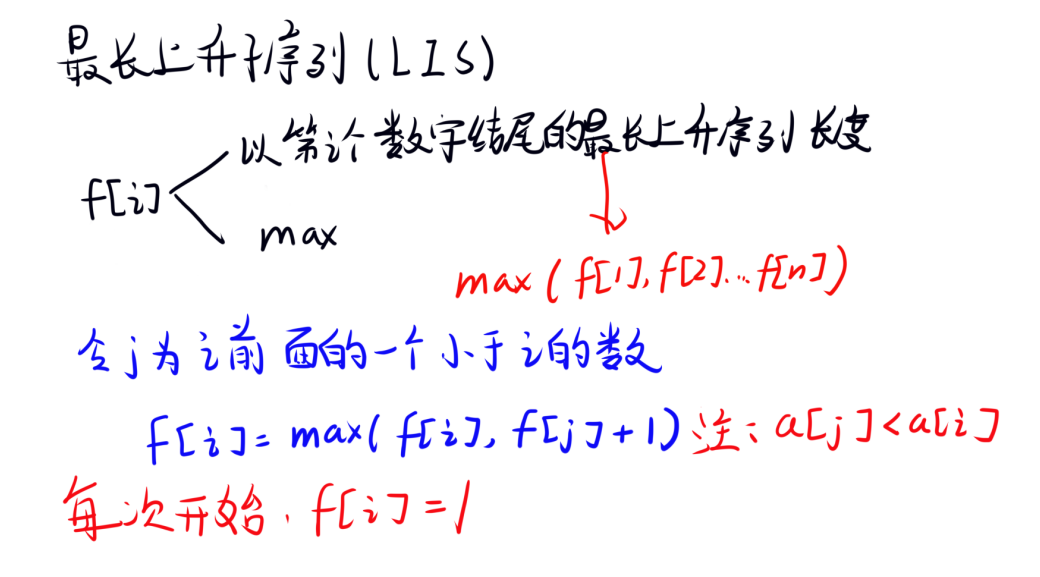 最长上升子序列(LIS)
以第i个数字结尾的最长上升序列长度
f[i]
max
max(f[1],f[2]...f[n])
令j为i前面的一个小于i的数
f[i]=max(f[i],f[j]+1) 注:a[j]<a[i]
每次开始.f[i]=1